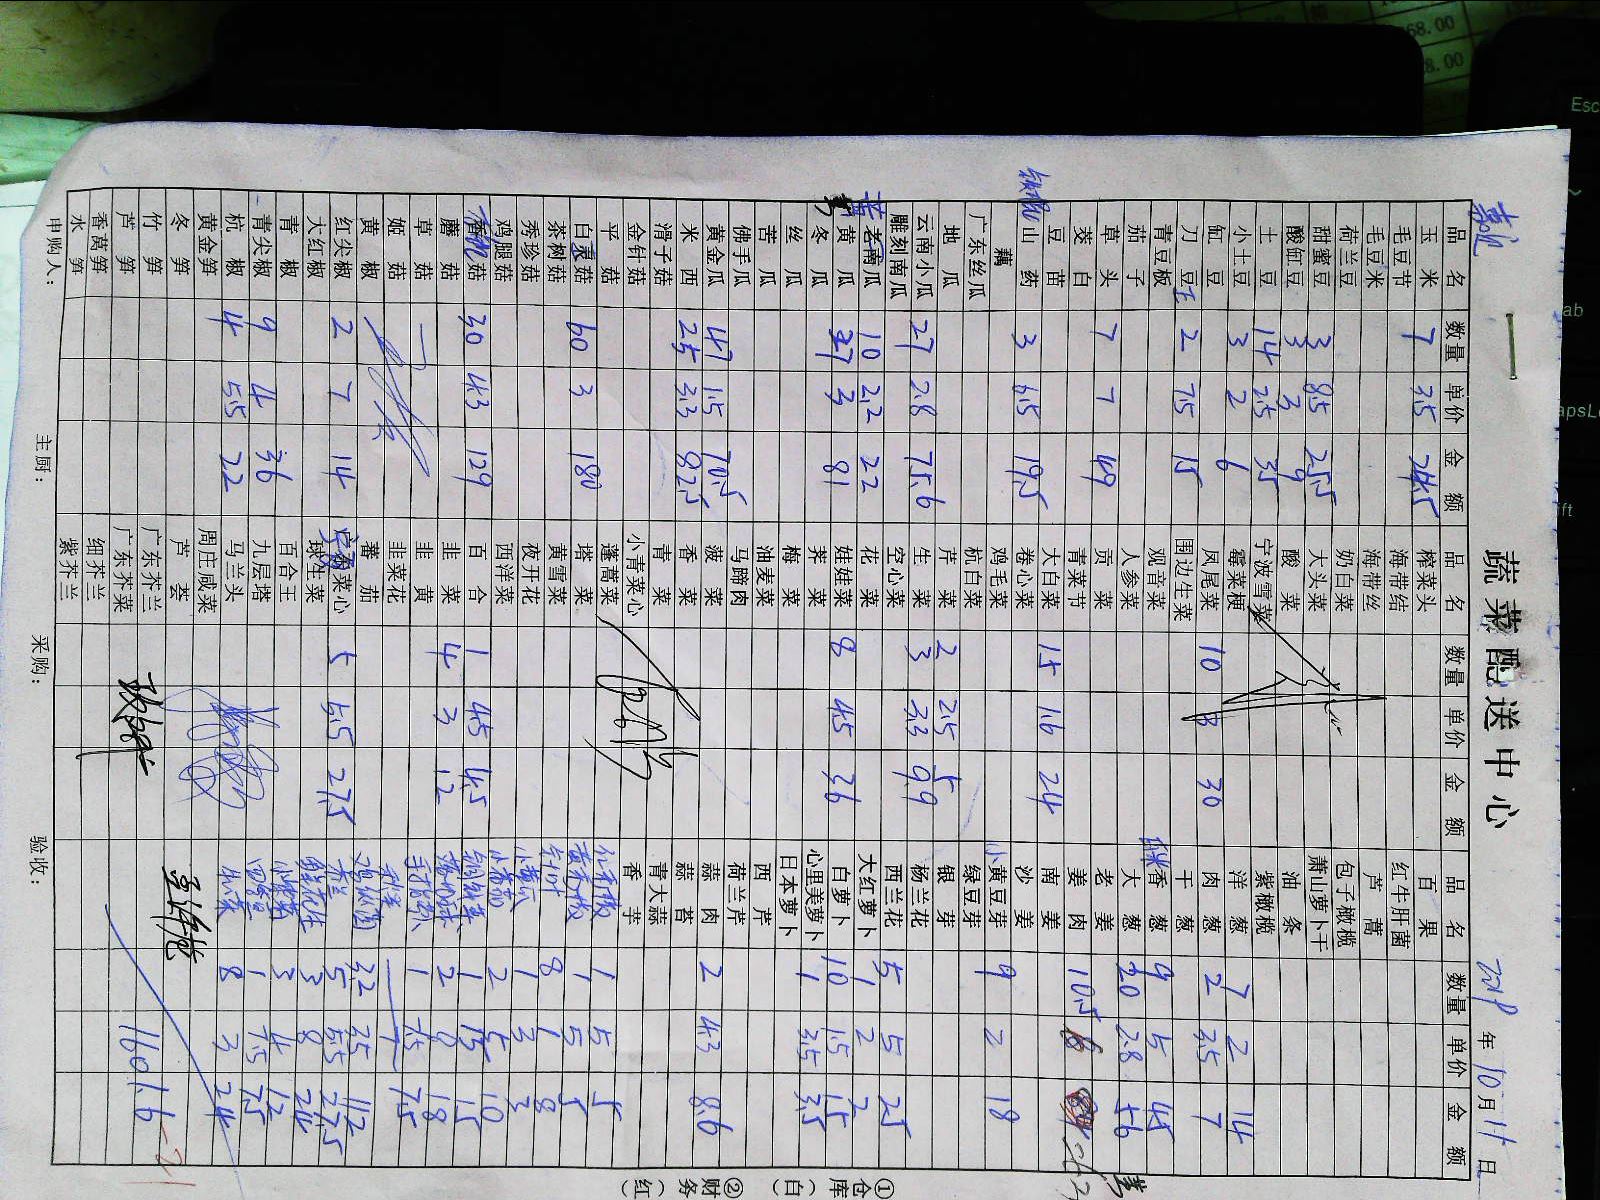 蔬菜配送中心
年 10 月 11 日
品名 数量 单价 金额 品名 数量 单价 金额 品名 数量 单价 金额
玉米 7 3.5 24.5 榨菜头 百果
毛豆节 海带结 红牛肝菌
毛豆米 海带丝 芦蒿
荷兰豆 奶白菜 包子橄榄
甜蜜豆 3 8.5 25.5 大头菜 萧山萝卜干
酸缸豆 3 3 9 酸菜 油条
土豆 14 2.5 35 宁波雪菜 紫橄榄
小土豆 3 2 6 霉菜梗 洋葱 7 2 14
缸豆 凤尾菜 10 3 30 肉葱 2 3.5 7
刀豆 2 7.5 15 围边生菜 干葱
青豆板 观音菜 香葱 9 5 45
茄子 人参菜 大葱 20 2.8 56
草头 7 7 49 贡菜 老姜
茭白 青菜节 姜肉 10.5
豆苗 大白菜 15 1.6 24 南姜
山药 3 6.5 19.5 卷心菜 沙姜
藕 鸡毛菜 小黄豆芽 9 2 18
广东丝瓜 杭白菜 绿豆芽
地瓜 芹菜 2 2.5 5 银芽
云南小瓜 27 2.8 75.6 生菜 3 3.3 9.9 杨兰花
雕刻南瓜 空心菜 西兰花 5 5 25
老南瓜 10 2.2 22 花菜 大红萝卜 1 2 2
黄瓜 27 3 81 娃娃菜 8 4.5 36 白萝卜 10 1.5 15
冬瓜 荠菜 心里美萝卜 1 3.5 3.5
丝瓜 梅菜 日本萝卜
苦瓜 油麦菜 西芹
佛手瓜 马蹄肉 荷兰芹
黄金瓜 47 1.5 70.5 菠菜 蒜肉 2 4.3 8.6
米西 25 3.3 82.5 香菜 蒜苔
滑子菇 青菜 青大蒜
金针菇 小青菜心 香芋
平菇 蓬蒿菜 1 5 5
白灵菇 60 3 180 塔菜 1 5 5
茶树菇 黄雪菜 8 1 8
秀珍菇 夜开花 小黄瓜 1 3 3
鸡腿菇 西洋菜 2 5 10
香菇 30 4.3 129 百合 1 4.5 4.5 1 15 15
蘑菇 韭菜 4 3 12 2 9 18
草菇 韭黄 1 7.5 7.5
姬菇 韭菜花
黄椒 蕃茄 32 3.5 112
红尖椒 2 7 14 菜心 5 5.5 27.5 5 5.5 27.5
大红椒 球生菜 3 8 24
青椒 百合王 3 4 12
青尖椒 9 4 36 九层塔 1 7.5 7.5
杭椒 4 5.5 22 马兰头 8 3 24
黄金笋 周庄咸菜
冬笋 芦荟
竹笋 广东芥兰 1601.6
芦笋 广东芥菜
香莴笋 细芥兰
水笋 紫芥兰
申购人： 主厨： 采购： 验收：
①仓库（白） ②财务（红）